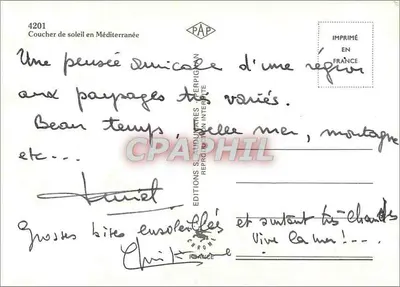 4201
Coucher de soleil en Méditerranée
PAP
IMPRIMÉ
EN
FRANCE
Une pensée amicale d'une région
aux paysages très variés.
Beau temps, belle mer, montagne
etc...
CPARAPHIL
EDITIONS S. PERPIGNAN
REPRODUCTION INTERDITE
Grosses bises ensoleillés et surtout très chauds
Vive la mer!...